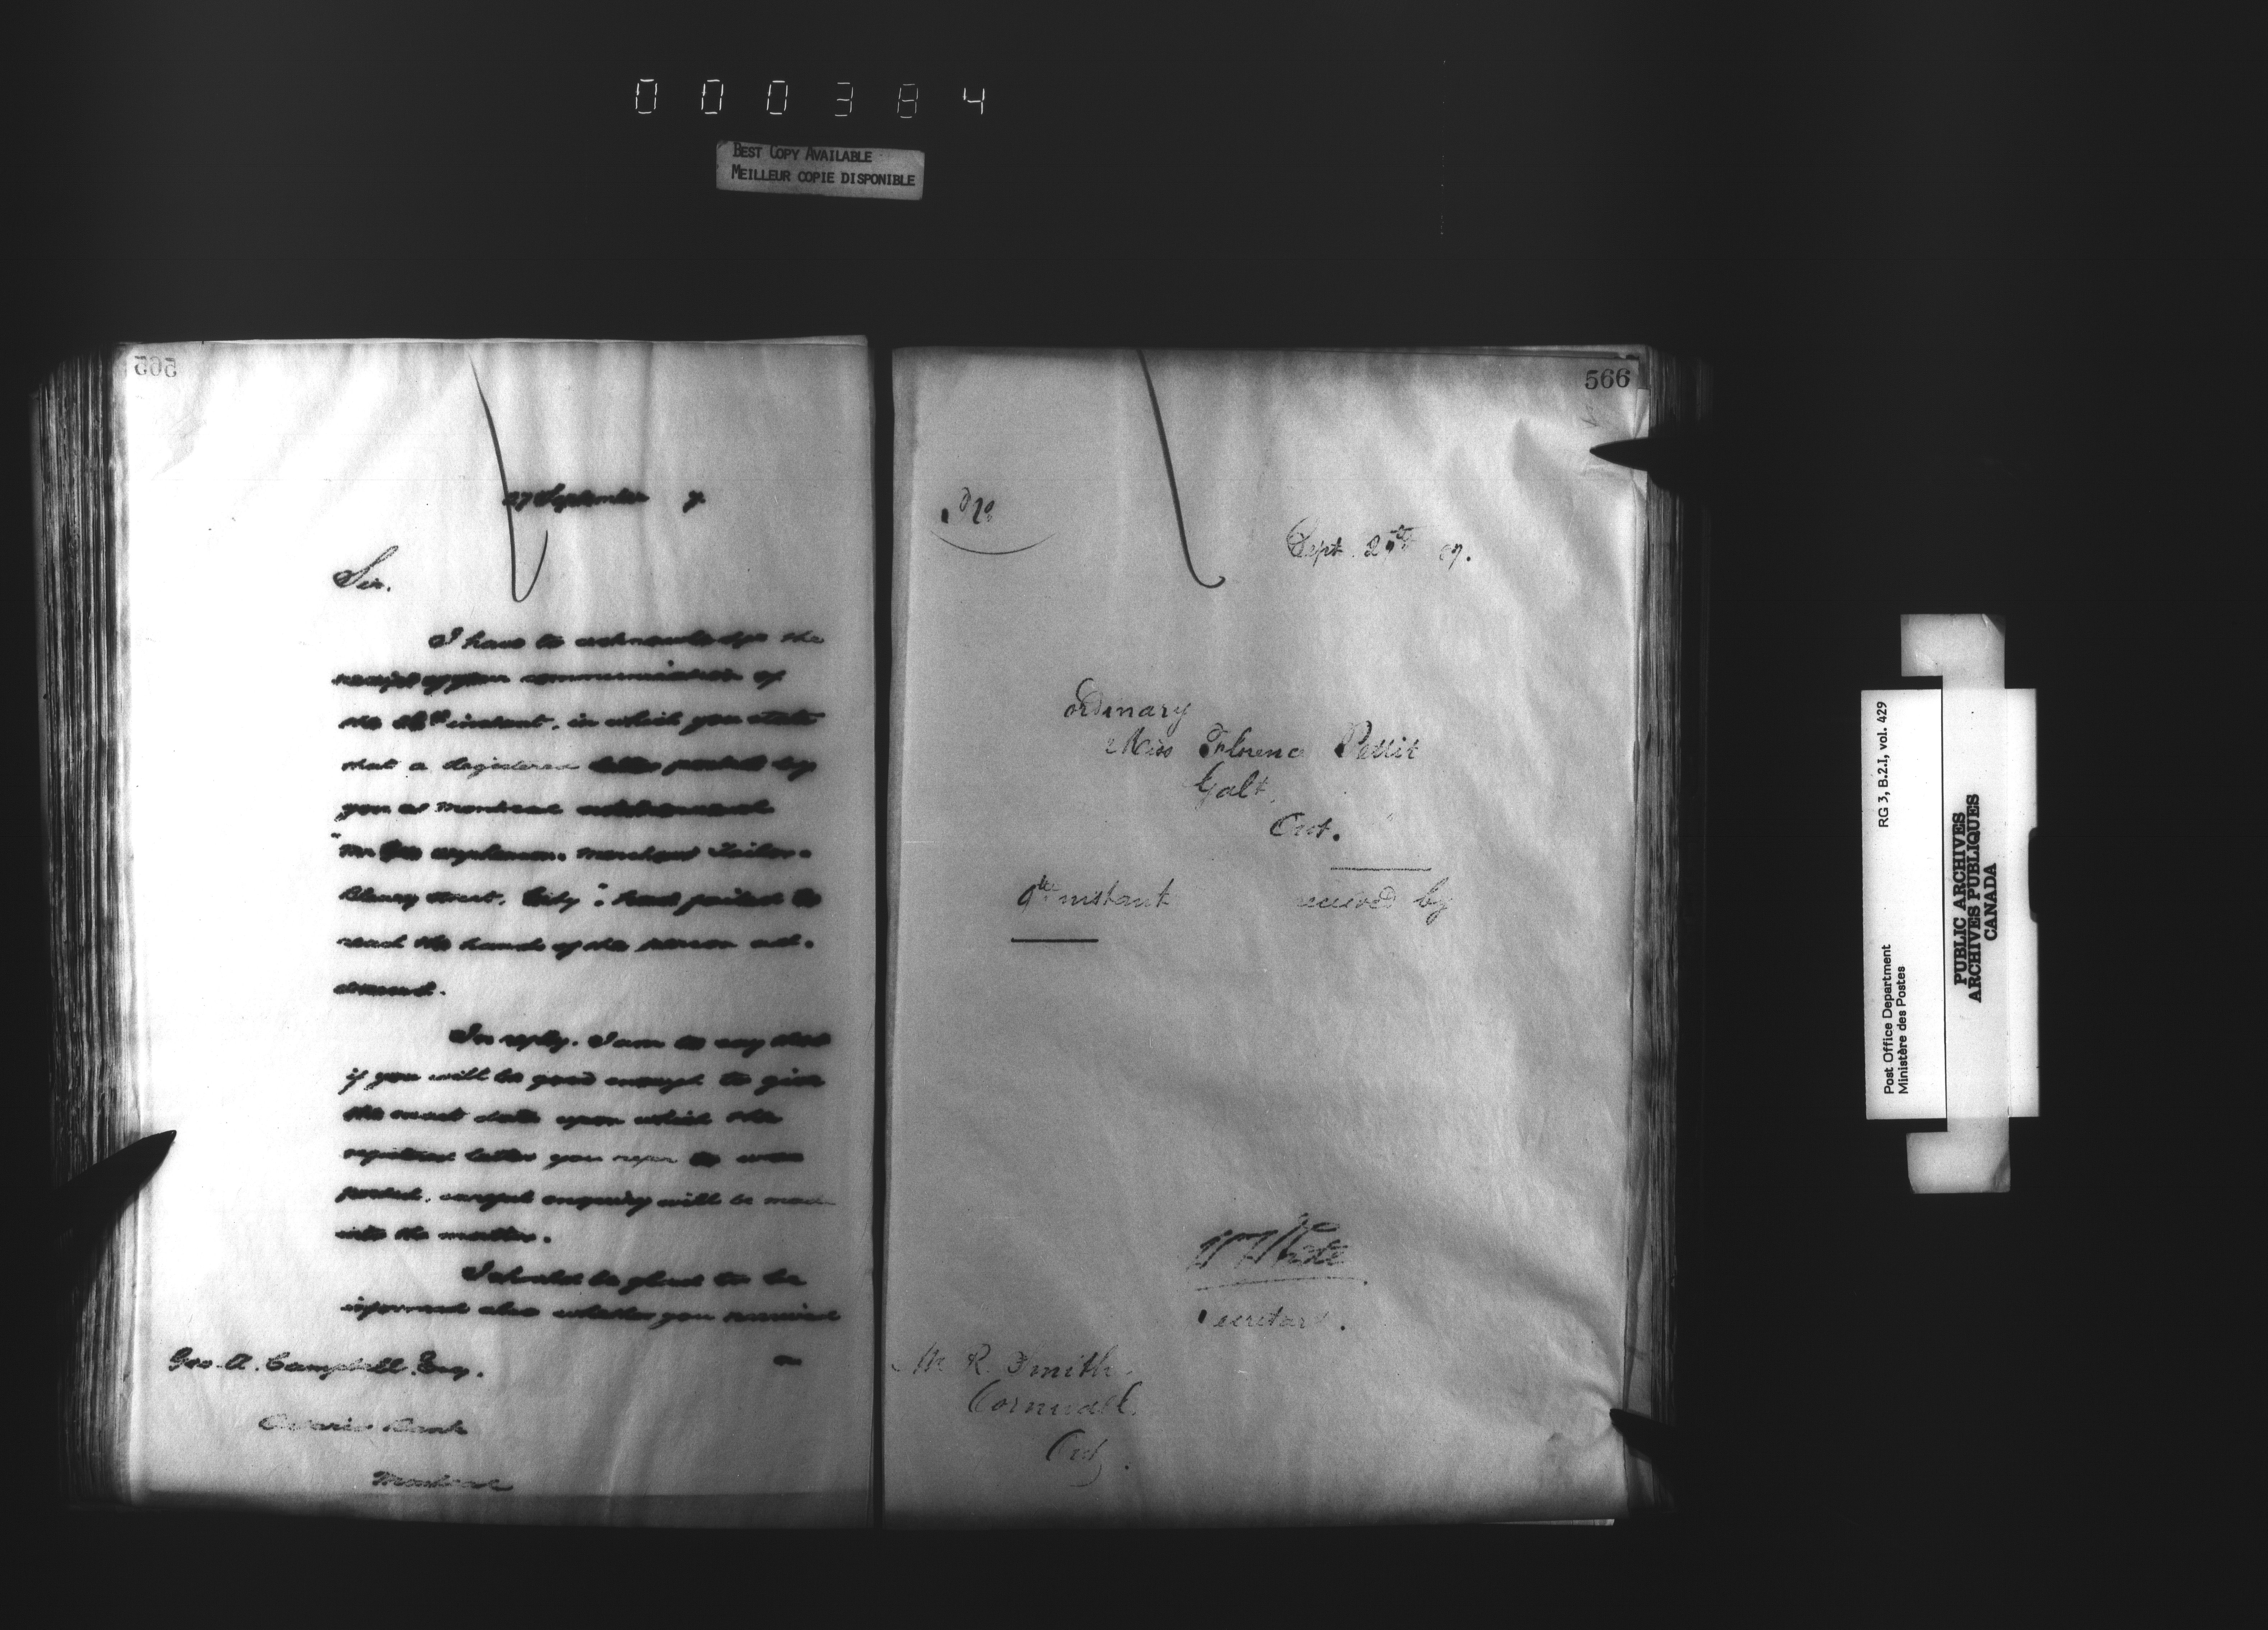 000384
BEST COPY AVAILABLE
MEILLEUR COPIE DISPONIBLE
565
27 September 7
Sir.
I have to acknowledge the
receipt of your communication of
the instant, in which you state
that a Registered letter posted by
you at Montreal addressed
"Mr Geo merchant Tailor.
Bleury Street, City": had failed to
reach the hands of the person ad-
dressed.
In reply. I am to say that
if you will be good enough to give
the exact date upon which the
registered letter you refer to was
posted. careful enquiry will be made
into the matter.
I should be glad to be
informed also whether you received
Geo. A. Campbell. Esq.
a
Ontario Bank
Montreal
566
No
Sept. 27th 87.
Ordinary
Miss Florence Pettit
Galt
Ont.
9th instant received by
Wm White
Secretary.
M R. Smith.
Cornwall.
Ont.
RG 3, B.2.I, vol. 429
Post Office Department
Ministère des Postes
PUBLIC ARCHIVES
ARCHIVES PUBLIQUES
CANADA